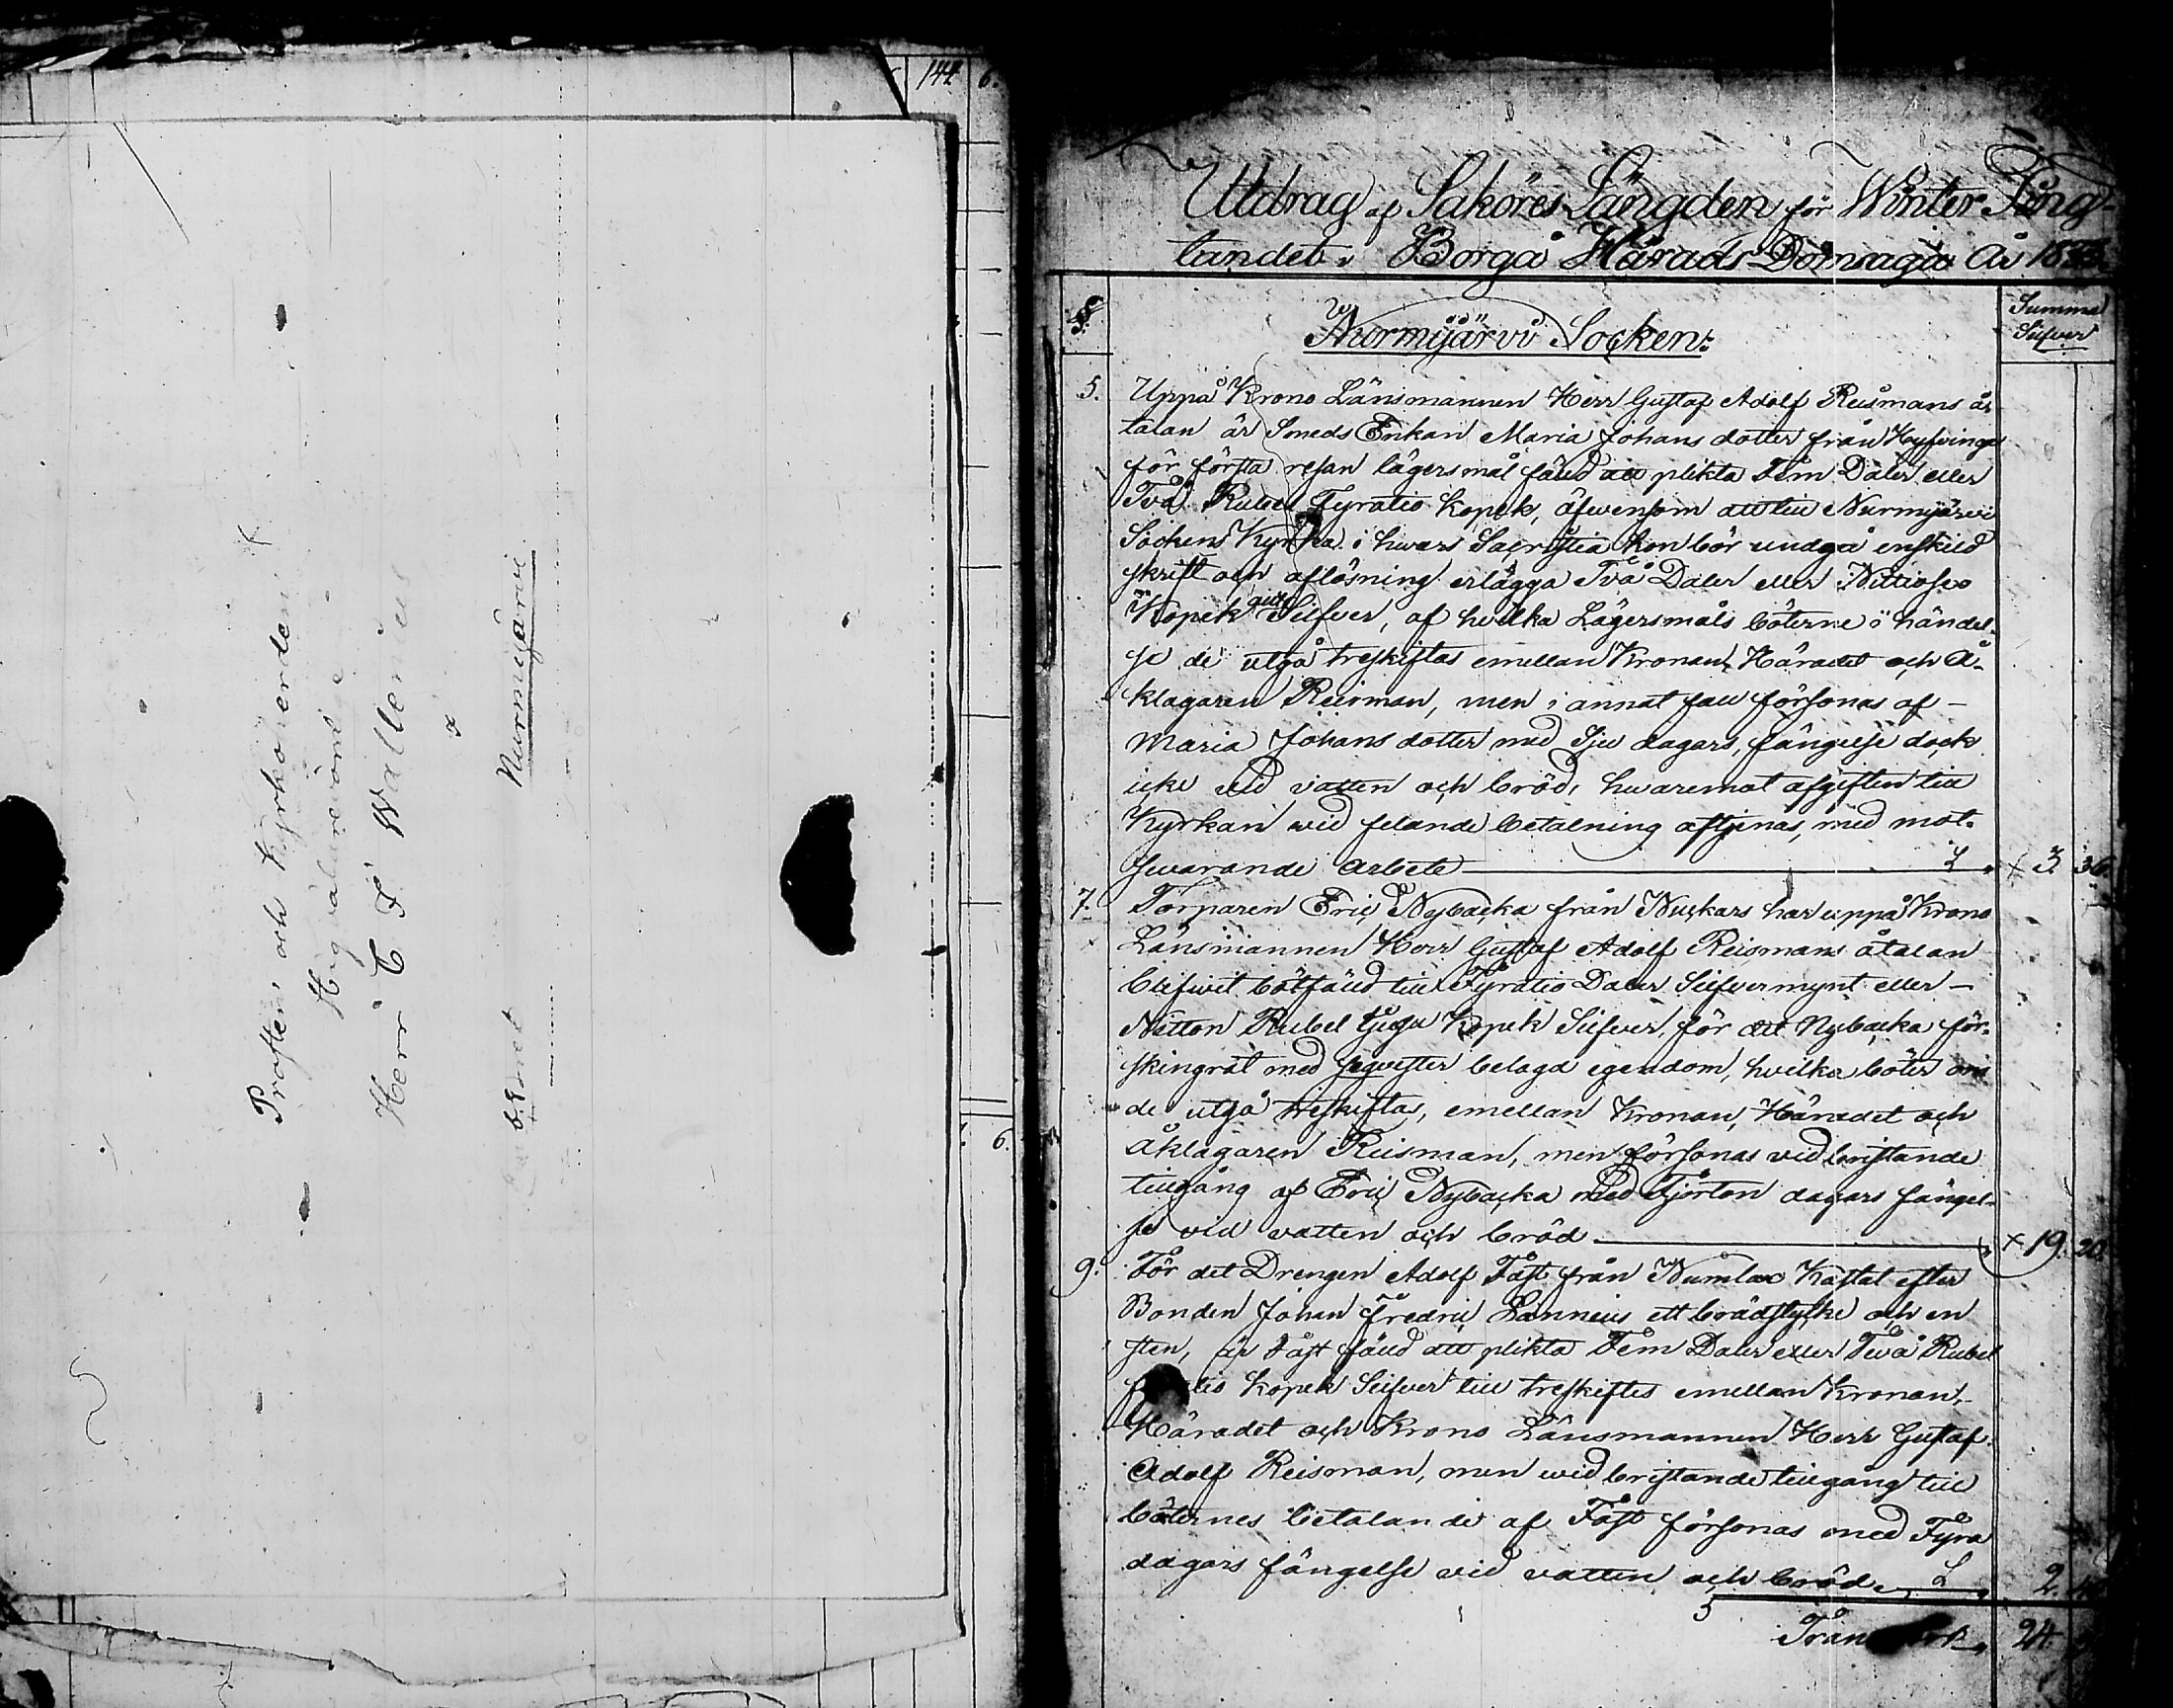 144 6.
Prosten och Kyrkoherden
Högvälärevörd
Herr C F Wallenius
Nurmijärvi
6.
Utdrag af Sakörés Längden för Winter Ting
landet i Borgå Härads Domsaga År 18
§. Nurmijärvi Socken: Summa Silfver
5. Uppå Krono Länsmannen Herr Gustaf Adolf Reismans å,
talan är Smeds Enkan Maria Johans dotter från Hyfvinge
för första resan lägersmål fäld att plikta Fem Daler eller
Två Rubel Fyratio Kopek, äfwensom att till Nurmijärvi
Sockens Kyrka i hwars Sacristia hon bör undgå enskild
skrift och aflösning erlägga Två Daler eller Nittiosex
Kopek Silfver, af hvilka Lägersmåls böterne i händel-
se de utgå treskiftas emellan Kronan, Häradet och Å-
klagaren Reisman, men i annat fall försonas af -
Maria Johans dotter med Sju dagars, fängelse dock
icke vid vatten och bröd, hwaremot afgiften till
Kyrkan wid felande betalning aftjenas, med mot-
svarande arbete x 3. 36.
7. Torparen Eric Nybacka från Nuckars har uppå Krono
Länsmannen Herr Gustaf Adolf Reismans åtalan
blifwit bötfäld till Fyratio Daler Silfvermynt eller -
Nitton Rubel tjugu Kopek Silfver, för det Nybacka för-
skingrat med seqvester belagd egendom, hvilka böter om
de utgå treskiftas, emellan Kronan, Häradet och
Åklagaren Reisman, men försonas vid bristande
tillgång af Eric Nybacka med Fjorton dagars fängel-
se vid vatten och bröd x 19. 20.
9. För det Drengen Adolf Fåst från Numlax Kastat efter
Bonden Johan Fredric Lannéus ett brädstycke och en
sten, är Fåst fäld att plikta Fem Daler eller Twå Rubel
Kopek Silfver till treskiftes emellan Kronan,
Häradet och Krono Länsmannen Herr Gustaf
Adolf Reisman, men wid bristande tillgång till
böternes betalande af Fåst försonas med Fyra
dagars fängelse vid vatten och bröd 2.
24.